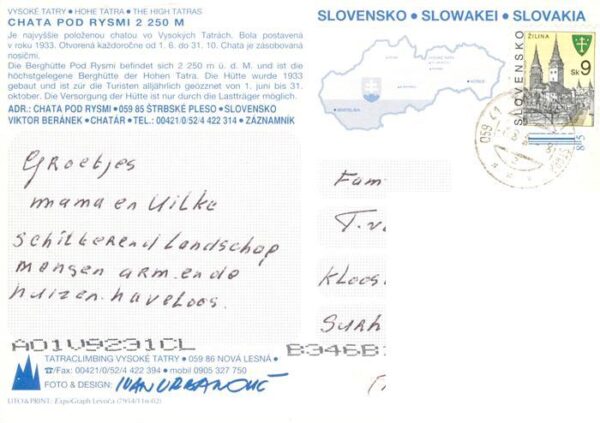 VYSOKÉ TATRY • HOHE TATRA • THE HIGH TATRAS
CHATA POD RYSMI 2 250 M
Je najvyššie položenou chatou vo Vysokých Tatrách. Bola postavená
v roku 1933. Otvorená každoročne od 1. 6. do 31. 10. Chata je zásobovaná
nosičmi.
Die Berghütte Pod Rysmi befindet sich 2 250 m ü. d. M. und ist die
höchstgelegene Berghütte der Hohen Tatra. Die Hütte wurde 1933
gebaut und ist zur die Turisten alljährlich geözznet von 1. juni bis 31.
oktober. Die Versorgung der Hütte ist nur durch die Lastträger möglich.
ADR.: CHATA POD RYSMI • 059 85 ŠTRBSKÉ PLESO • SLOVENSKO
VIKTOR BERÁNEK • CHATÁR • TEL.: 00421/0/52/4 422 314 • ZÁZNAMNÍK
SLOVENSKO • SLOWAKEI • SLOVAKIA
SLOVENSKO
ŽILINA
Sk 9
059
Groetjes
mama en Uilke
Schitterend landschap
mensen arm en de
huizen haveloos.
Fam
T.v
Kloos
Surh
A01V9231CL
B346B
TATRACLIMBING VYSOKÉ TATRY • 059 86 NOVÁ LESNÁ •
☎/Fax: 00421/0/52/4 422 394 • mobil 0905 327 750
FOTO & DESIGN: IVAN URBANOVIČ
LITO&PRINT: ExpoGraph Levoča (7954/116-02)